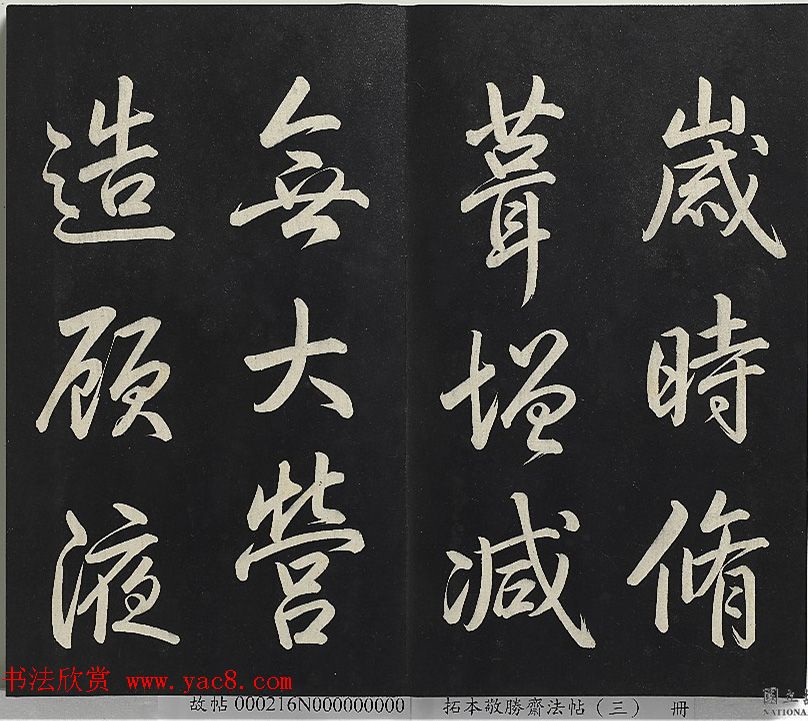 歲時脩
葺增減
無大營
造顧液
书法欣赏 www.yac8.com
故帖 000216N000000000 拓本敬勝齋法帖（三） 冊
國立
NATIONA